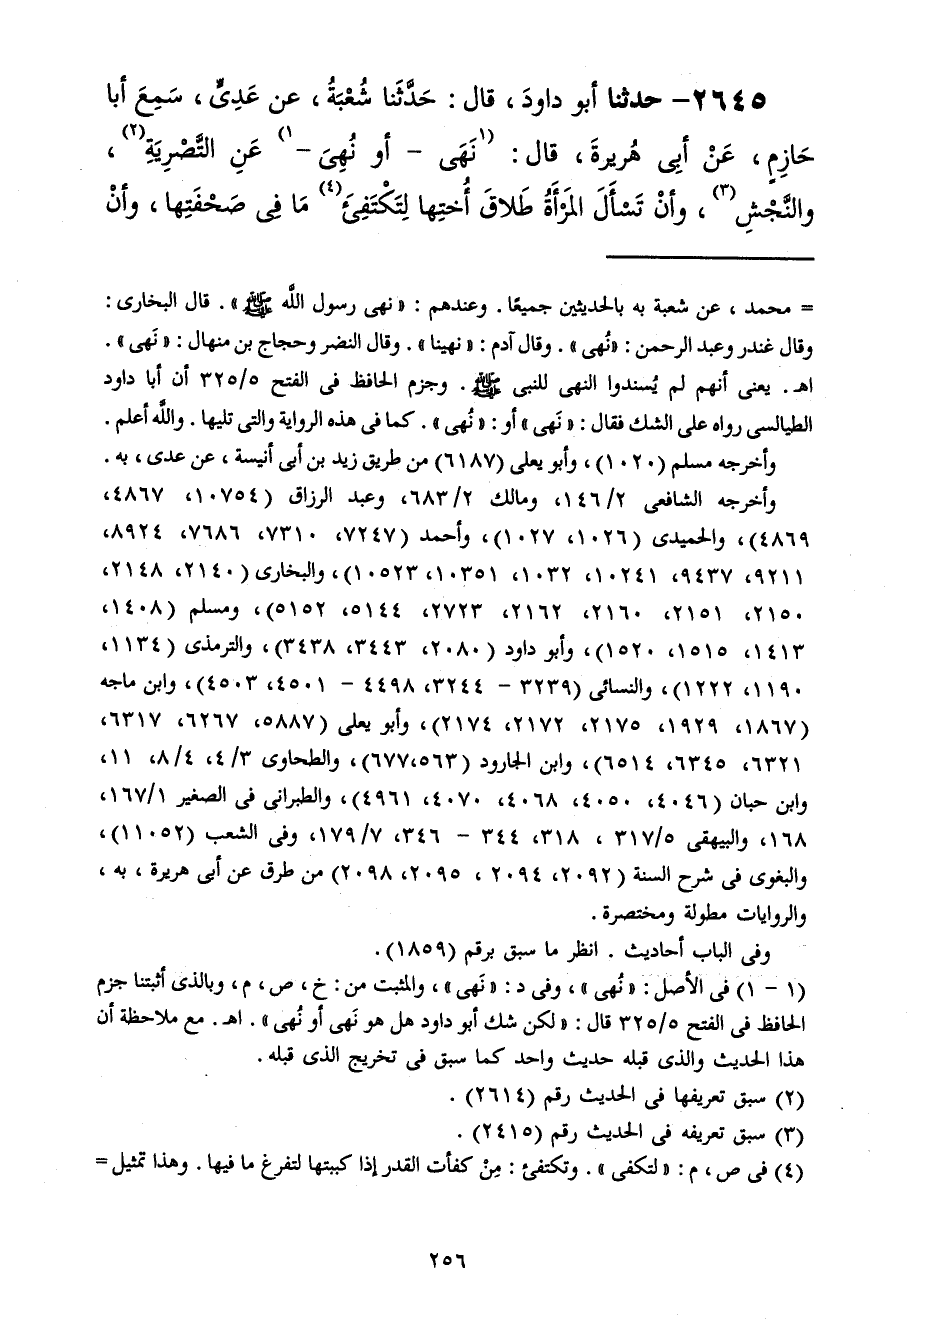 ٢٦٤٥- حدثنا أبو داودَ ، قال : حَدَّثَنا شُعْبَةُ ، عن عَدِىٍّ ، سَمِعَ أبا
حَازِمٍ ، عَنْ أبِى هُريرةَ ، قال : (١نَهَى - أو نُهِىَ -١) عَنِ التَّصْرِيَةِ(٢) ،
والنَّجْشِ(٣) ، وأنْ تَسْأَلَ المَرْأَةُ طَلاقَ أُختِها لِتَكْتَفِئَ(٤) مَا فِى صَحْفَتِها ، وأنْ
= محمد ، عن شعبة به بالحديثين جميعًا . وعندهم : « نهى رسول اللَّه ﷺ » . قال البخارى :
وقال غندر وعبد الرحمن : « نُهى » . وقال آدم : « نهينا » . وقال النضر وحجاج بن منهال : « نَهى » .
اهـ . يعنى أنهم لم يُسندوا النهى للنبى ﷺ . وجزم الحافظ فى الفتح ٣٢٥/٥ أن أبا داود
الطيالسى رواه على الشك فقال : « نَهى » أو : « نُهى » . كما فى هذه الرواية والتى تليها . واللَّه أعلم .
وأخرجه مسلم (١٠٢٠) ، وأبو يعلى (٦١٨٧) من طريق زيد بن أبى أنيسة ، عن عدى ، به .
وأخرجه الشافعى ١٤٦/٢، ومالك ٦٨٣/٢، وعبد الرزاق (١٠٧٥٤، ٤٨٦٧،
٤٨٦٩)، والحميدى (١٠٢٦، ١٠٢٧)، وأحمد (٧٢٤٧، ٧٣١٠، ٧٦٨٦، ٨٩٢٤،
٩٢١١، ٩٤٣٧، ١٠٢٤١، ١٠٣٢، ١٠٣٥١، ١٠٥٢٣)، والبخارى (٢١٤٠، ٢١٤٨،
٢١٥٠، ٢١٥١، ٢١٦٠، ٢١٦٢، ٢٧٢٣، ٥١٤٤، ٥١٥٢)، ومسلم (١٤٠٨،
١٤١٣، ١٥١٥، ١٥٢٠)، وأبو داود (٢٠٨٠، ٣٤٤٣، ٣٤٣٨)، والترمذى (١١٣٤،
١١٩٠، ١٢٢٢)، والنسائى (٣٢٣٩ - ٣٢٤٤، ٤٤٩٨ - ٤٥٠١، ٤٥٠٣)، وابن ماجه
(١٨٦٧، ١٩٢٩، ٢١٧٥، ٢١٧٢، ٢١٧٤)، وأبو يعلى (٥٨٨٧، ٦٢٦٧، ٦٣١٧،
٦٣٢١، ٦٣٤٥، ٦٥١٤)، وابن الجارود (٦٧٧،٥٦٣)، والطحاوى ٤/٣، ٨/٤، ١١،
وابن حبان (٤٠٤٦، ٤٠٥٠، ٤٠٦٨، ٤٠٧٠، ٤٩٦١)، والطبرانى فى الصغير ١٦٧/١،
١٦٨، والبيهقى ٣١٧/٥ ، ٣١٨، ٣٤٤ - ٣٤٦، ١٧٩/٧، وفى الشعب (١١٠٥٢)،
والبغوى فى شرح السنة (٢٠٩٢، ٢٠٩٤ ، ٢٠٩٥، ٢٠٩٨) من طرق عن أبى هريرة ، به ،
والروايات مطولة ومختصرة .
وفى الباب أحاديث . انظر ما سبق برقم (١٨٥٩).
(١ - ١) فى الأصل : « نُهى » ، وفى د : « نَهى » ، والمثبت من : خ ، ص ، م ، وبالذى أثبتنا جزم
الحافظ فى الفتح ٣٢٥/٥ قال : « لكن شك أبو داود هل هو نَهى أو نُهى » . اهـ . مع ملاحظة أن
هذا الحديث والذى قبله حديث واحد كما سبق فى تخريج الذى قبله .
(٢) سبق تعريفها فى الحديث رقم (٢٦١٤) .
(٣) سبق تعريفه فى الحديث رقم (٢٤١٥) .
(٤) فى ص ، م : « لتكفى » . وتكتفئ : مِنْ كفأت القدر إذا كببتها لتفرغ ما فيها . وهذا تمثيل =
٢٥٦